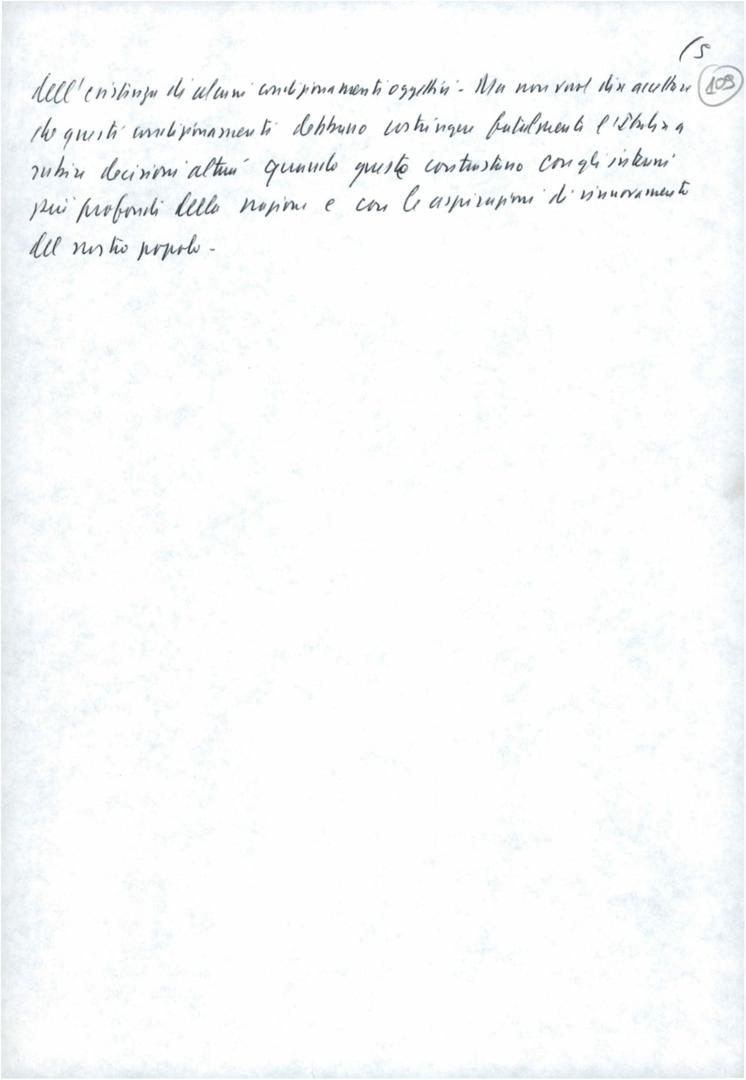 (5
109
dell'esistenza di alcuni condizionamenti oggettivi - Ma non vuol dire accettare
che questi condizionamenti debbano costringere fatalmente l'Italia a
subire decisioni altrui quando queste contrastino con gli interessi
più profondi della nazione e con le aspirazioni di rinnovamento
del nostro popolo -